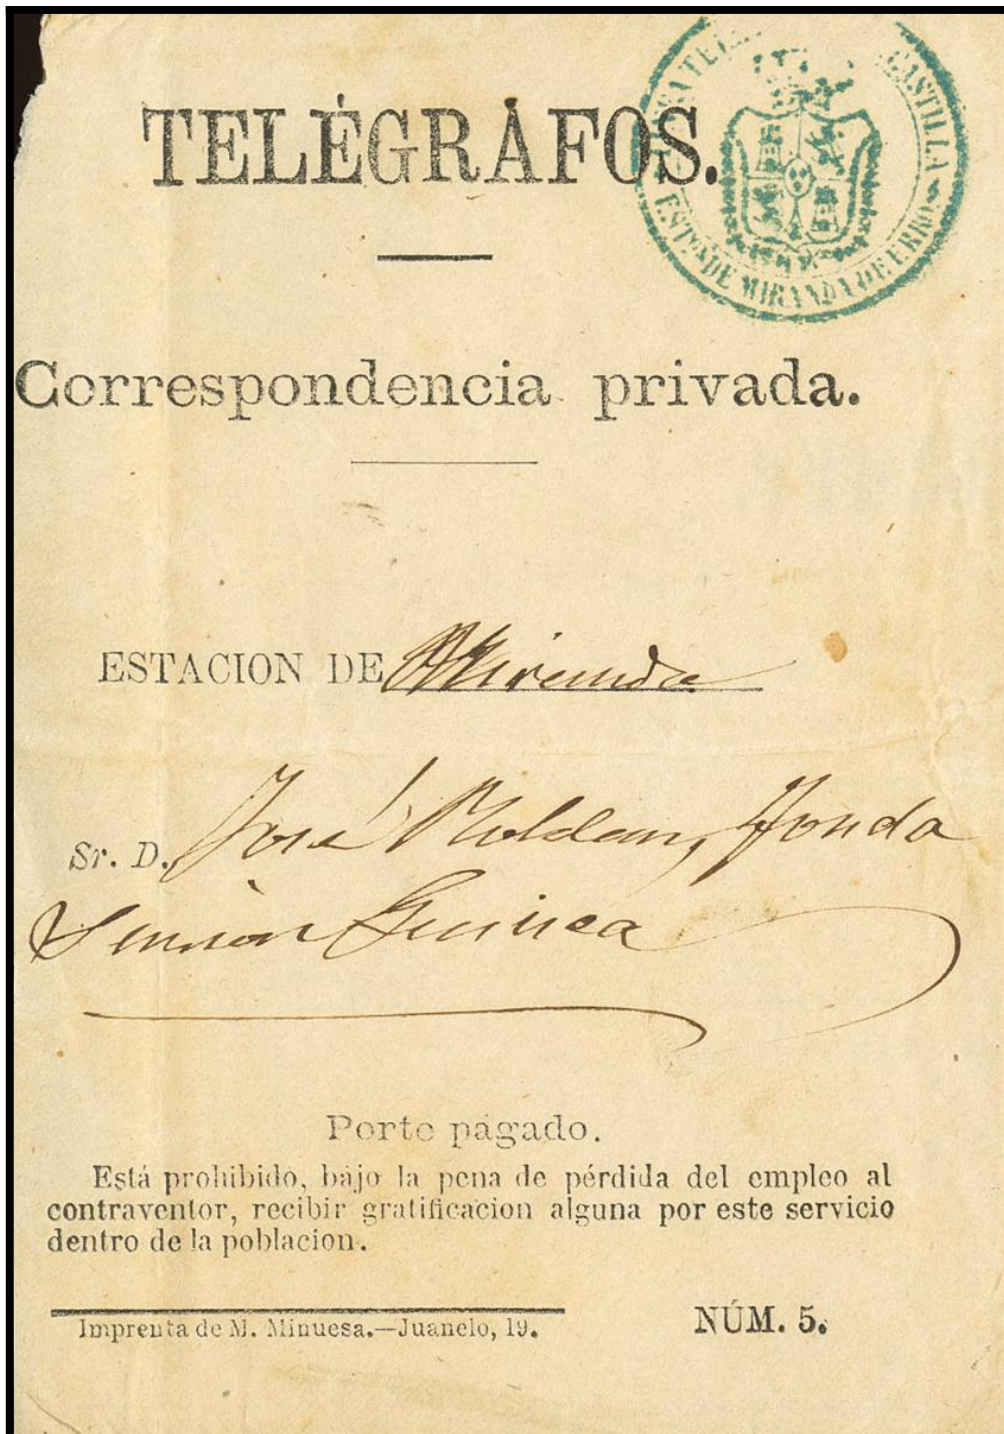 TELÉGRAFOS.
CASTILLA
ESTON DE MIRANDA DE EBRO
Correspondencia privada.
ESTACION DE Miranda
Sr. D. José Roldan, fonda
Guinea
Porte pagado.
Está prohibido, bajo la pena de pérdida del empleo al
contraventor, recibir gratificacion alguna por este servicio
dentro de la poblacion.
Imprenta de M. Minuesa.—Juanelo, 19.
NÚM. 5.